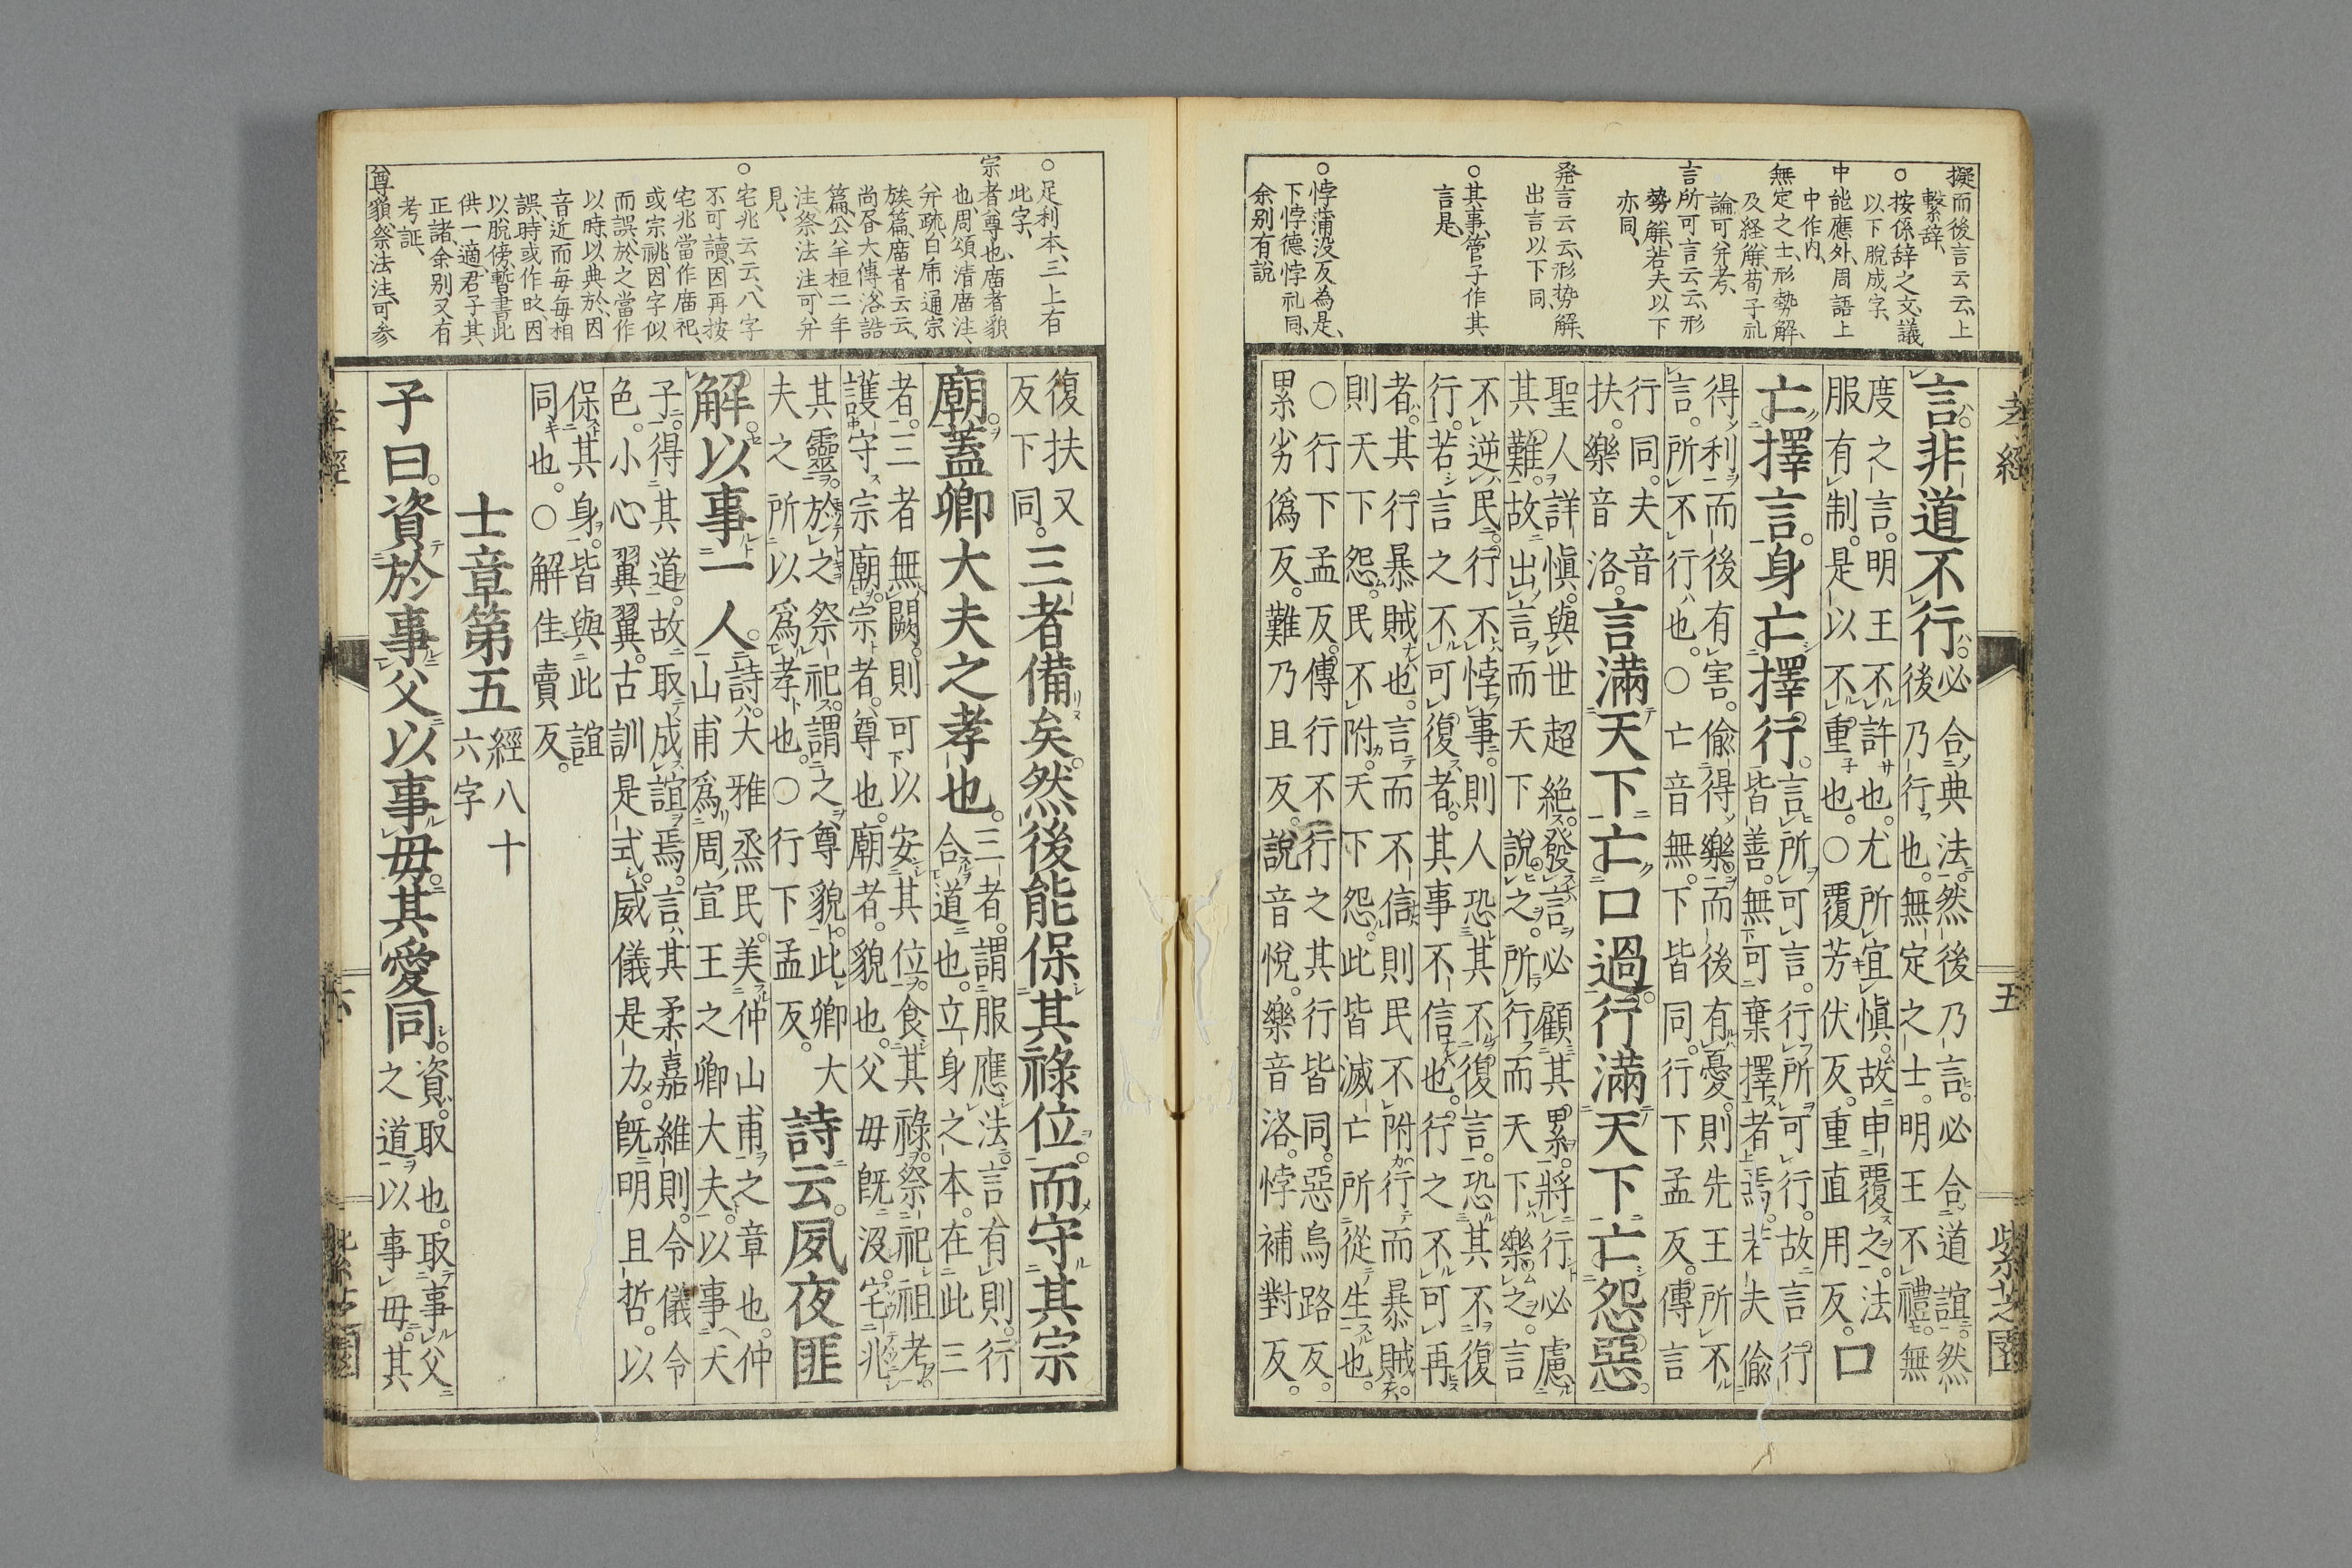 孝經 五 紫芝園
擬而後言云云、上
繫辞、
○按係辞之文、議
以下脫成字、
中能應外、周語上
中作内、
無定之士、形勢解、
及経解、荀子礼
論可幷考、
言所可言云云、形
勢解、若夫以下
亦同、
発言云云、形势解、
出言以下同、
○其事、管子作其
言是、
○悖蒲没反為是、
下悖德悖礼同、
余別有說
言。非道不行。必合典法。然後乃言。必合道誼。然
後乃行也。無定之士。明王不禮。無
度之言。明王不許也。尤所宜愼。故申覆之。法
服有制。是以不重也。○覆芳伏反。重直用反。口
亡擇言。身亡擇行。言所可言。行所可行。故言行
皆善。無可棄擇者焉。若夫偷
得利而後有害。偷得樂而後有憂。則先王所不
言。所不行也。○亡音無。下皆同。行下孟反。傳言
行同。夫音
扶。樂音洛。言滿天下亡口過。行滿天下亡怨惡。
聖人詳愼。與世超絶。發言必顧其累。將行必慮
其難。故出言而天下說之。所行而天下樂之。言
不逆民。行不悖事。則人恐其不復言。恐其不復
行。若言之不可復者。其事不信也。行之不可再
者。其行暴賊也。言而不信則民不附。行而暴賊。
則天下怨。民不附。天下怨。此皆滅亡所從生也。
○行下孟反。傳行不行之其行皆同。惡烏路反。
累劣僞反。難乃且反。說音悅。樂音洛。悖補對反。
○足利本、三上有
此字、
宗者尊也、廟者貌
也、周頌清廟注、
幷疏、白席通宗
族篇、廟者云云、
尚書大傳洛誥
篇、公羊桓二年
注祭法注可幷
見、
○宅兆云云、八字
不可讀、因再按
宅兆當作廟祀、
或宗祧、因字似
而誤、於之當作
以時、以典於、因
音近而每每相
誤、時或作旼、因
以脫傍、暫書此
供一適、君子其
正諸、余別又有
考証、
尊貌、祭法注、可参
復扶又
反下同。三者備矣。然後能保其祿位。而守其宗
廟。蓋卿大夫之孝也。三者。謂服應法。言有則。行
合道也。立身之本。在此三
者。三者無闕。則可以安其位。食其祿。祭祀祖考。
護守宗廟。宗者。尊也。廟者。貌也。父母旣沒。宅兆
其靈。於之祭祀。謂之尊貌。此卿大
夫之所以爲孝也。○行下孟反。詩云。夙夜匪
解。以事一人。詩。大雅烝民。美仲山甫之章也。仲
山甫爲周宣王之卿大夫。以事天
子。得其道。故取成誼焉。言其柔嘉維則。令儀令
色。小心翼翼。古訓是式。威儀是力。旣明且哲。以
保其身。皆與此誼
同也。○解佳賣反。
士章第五 經八十
六字
子曰。資於事父以事母。其愛同。資。取也。取事父
之道以事母。其
孝經 六 紫芝園